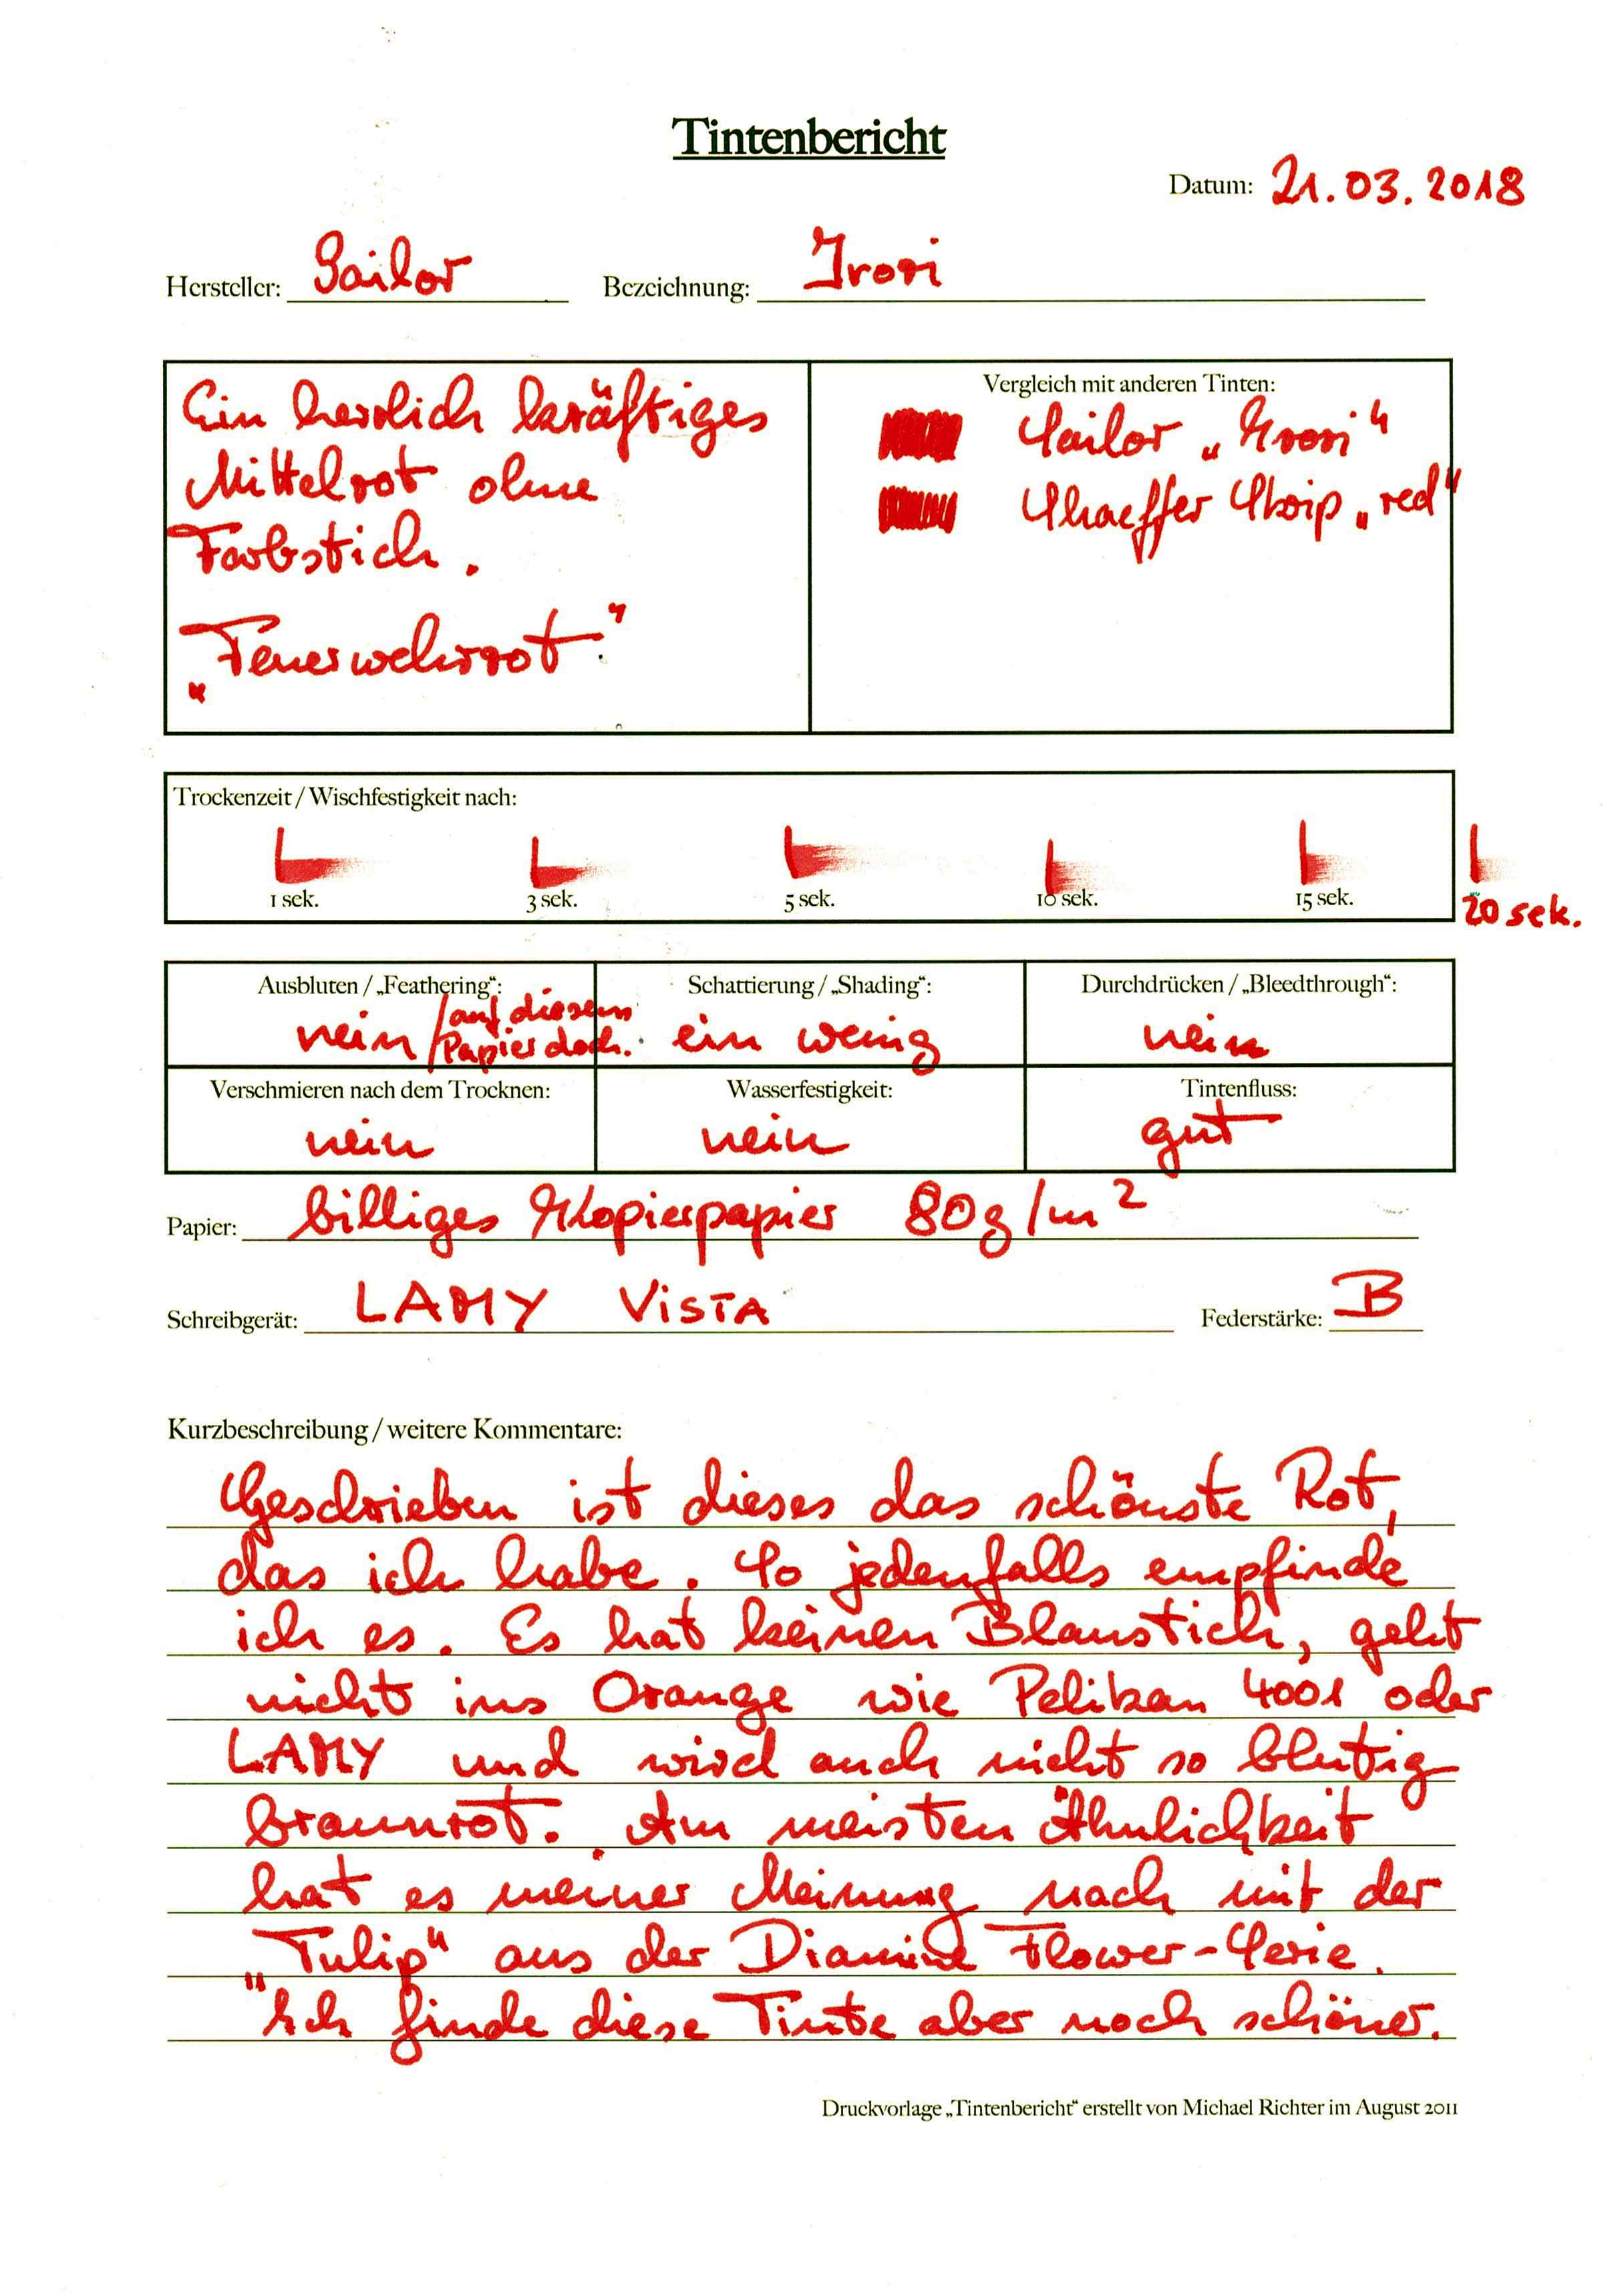 Tintenbericht
Datum: 21.03.2018
Hersteller: Sailor Bezeichnung: Irori
Ein herrlich kräftiges
Mittelrot ohne
Farbstich.
„Feuerwehrrot."
Vergleich mit anderen Tinten:
Sailor „Irori"
Shaeffer Skrip „red"
Trockenzeit / Wischfestigkeit nach:
1 sek. 3 sek. 5 sek. 10 sek. 15 sek. 20 sek.
Ausbluten / „Feathering“: Schattierung / „Shading“: Durchdrücken / „Bleedthrough“:
nein / auf diesem Papier doch. ein wenig nein
Verschmieren nach dem Trocknen: Wasserfestigkeit: Tintenfluss:
nein nein gut
Papier: billiges Kopierpapier 80g/m²
Schreibgerät: LAMY VISTA Federstärke: B
Kurzbeschreibung / weitere Kommentare:
Geschrieben ist dieses das schönste Rot,
das ich habe. So jedenfalls empfinde
ich es. Es hat keinen Blaustich, geht
nicht ins Orange wie Pelikan 4001 oder
LAMY und wird auch nicht so blutig
braunrot. Am meisten Ähnlichkeit
hat es meiner Meinung nach mit der
„Tulip" aus der Diamine Flower-Serie.
Ich finde diese Tinte aber noch schöner.
Druckvorlage „Tintenbericht“ erstellt von Michael Richter im August 2011